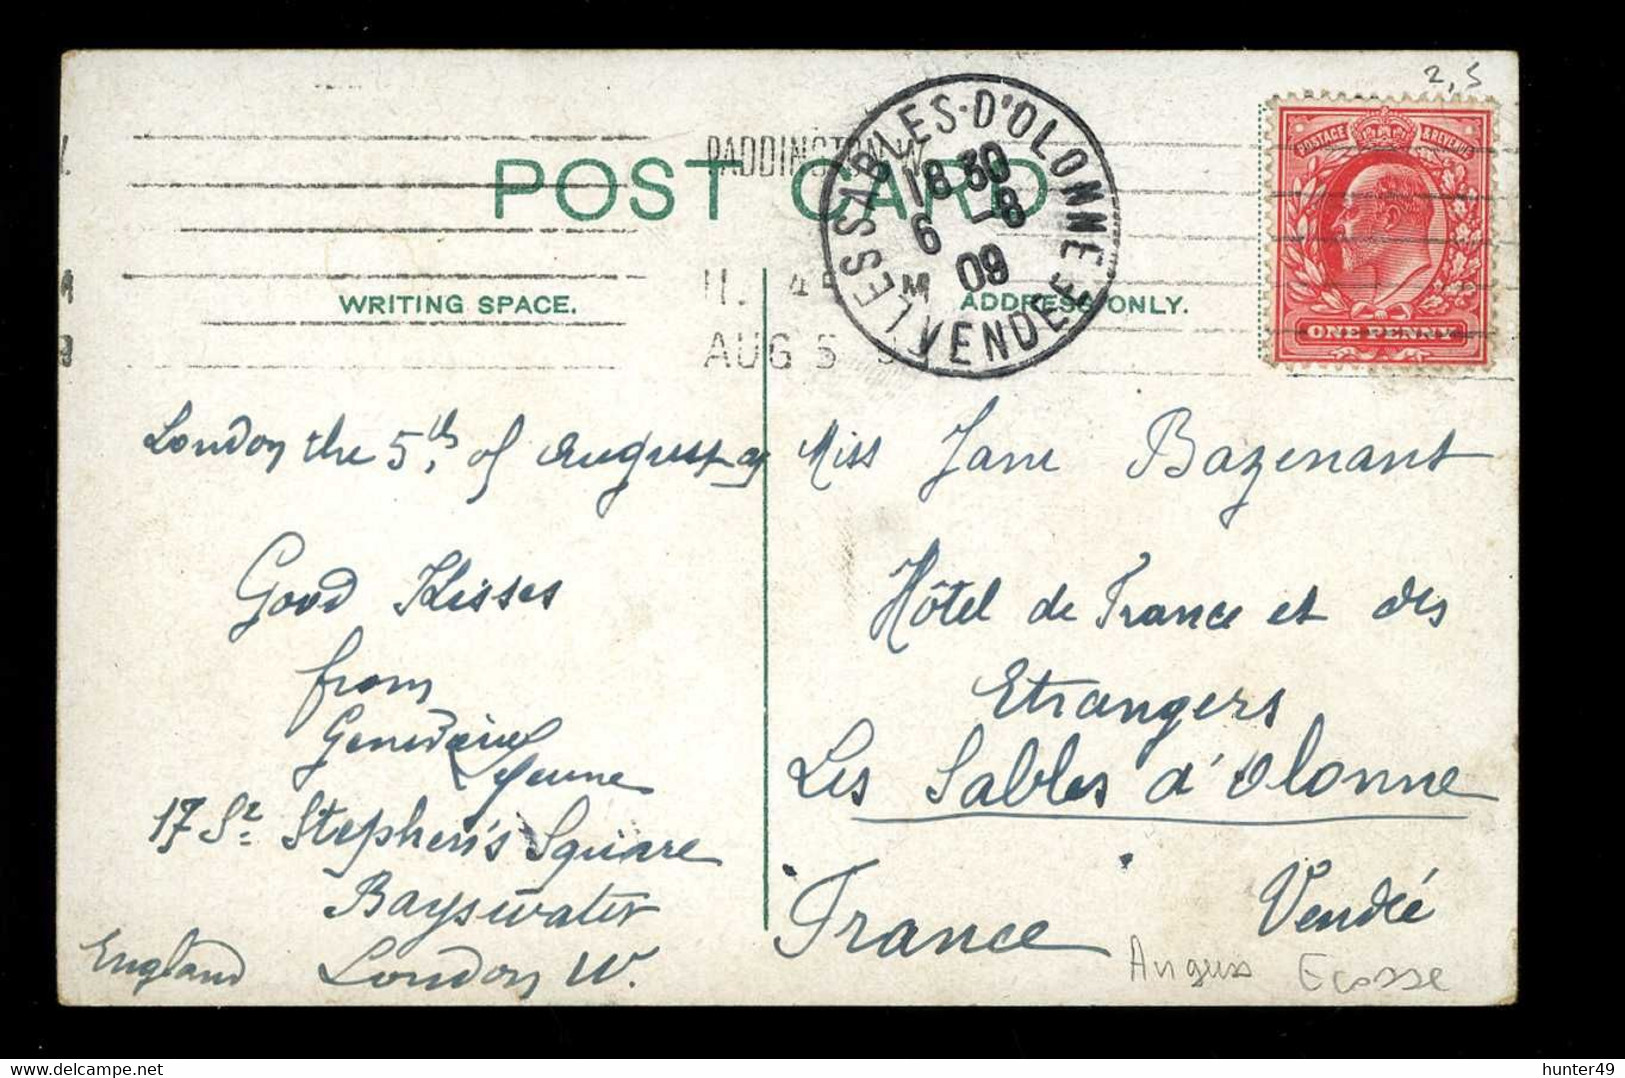 2,5
POSTAGE & REVENUE
ONE PENNY
PADDINGTON W
11. 45
AUG 5
LES SABLES-D'OLONNE
18 30
6 -8
09
VENDEE
POST CARD
WRITING SPACE.
ADDRESS ONLY.
London the 5th of August 09
Good Kisses
from
Geneviève
17 St Stephen's Square
Bayswater
England London W.
Miss Jane Bazenant
Hôtel de France et des
Etrangers
Les Sables d'Olonne
France Vendée
Angus Ecosse
delcampe.net
hunter49